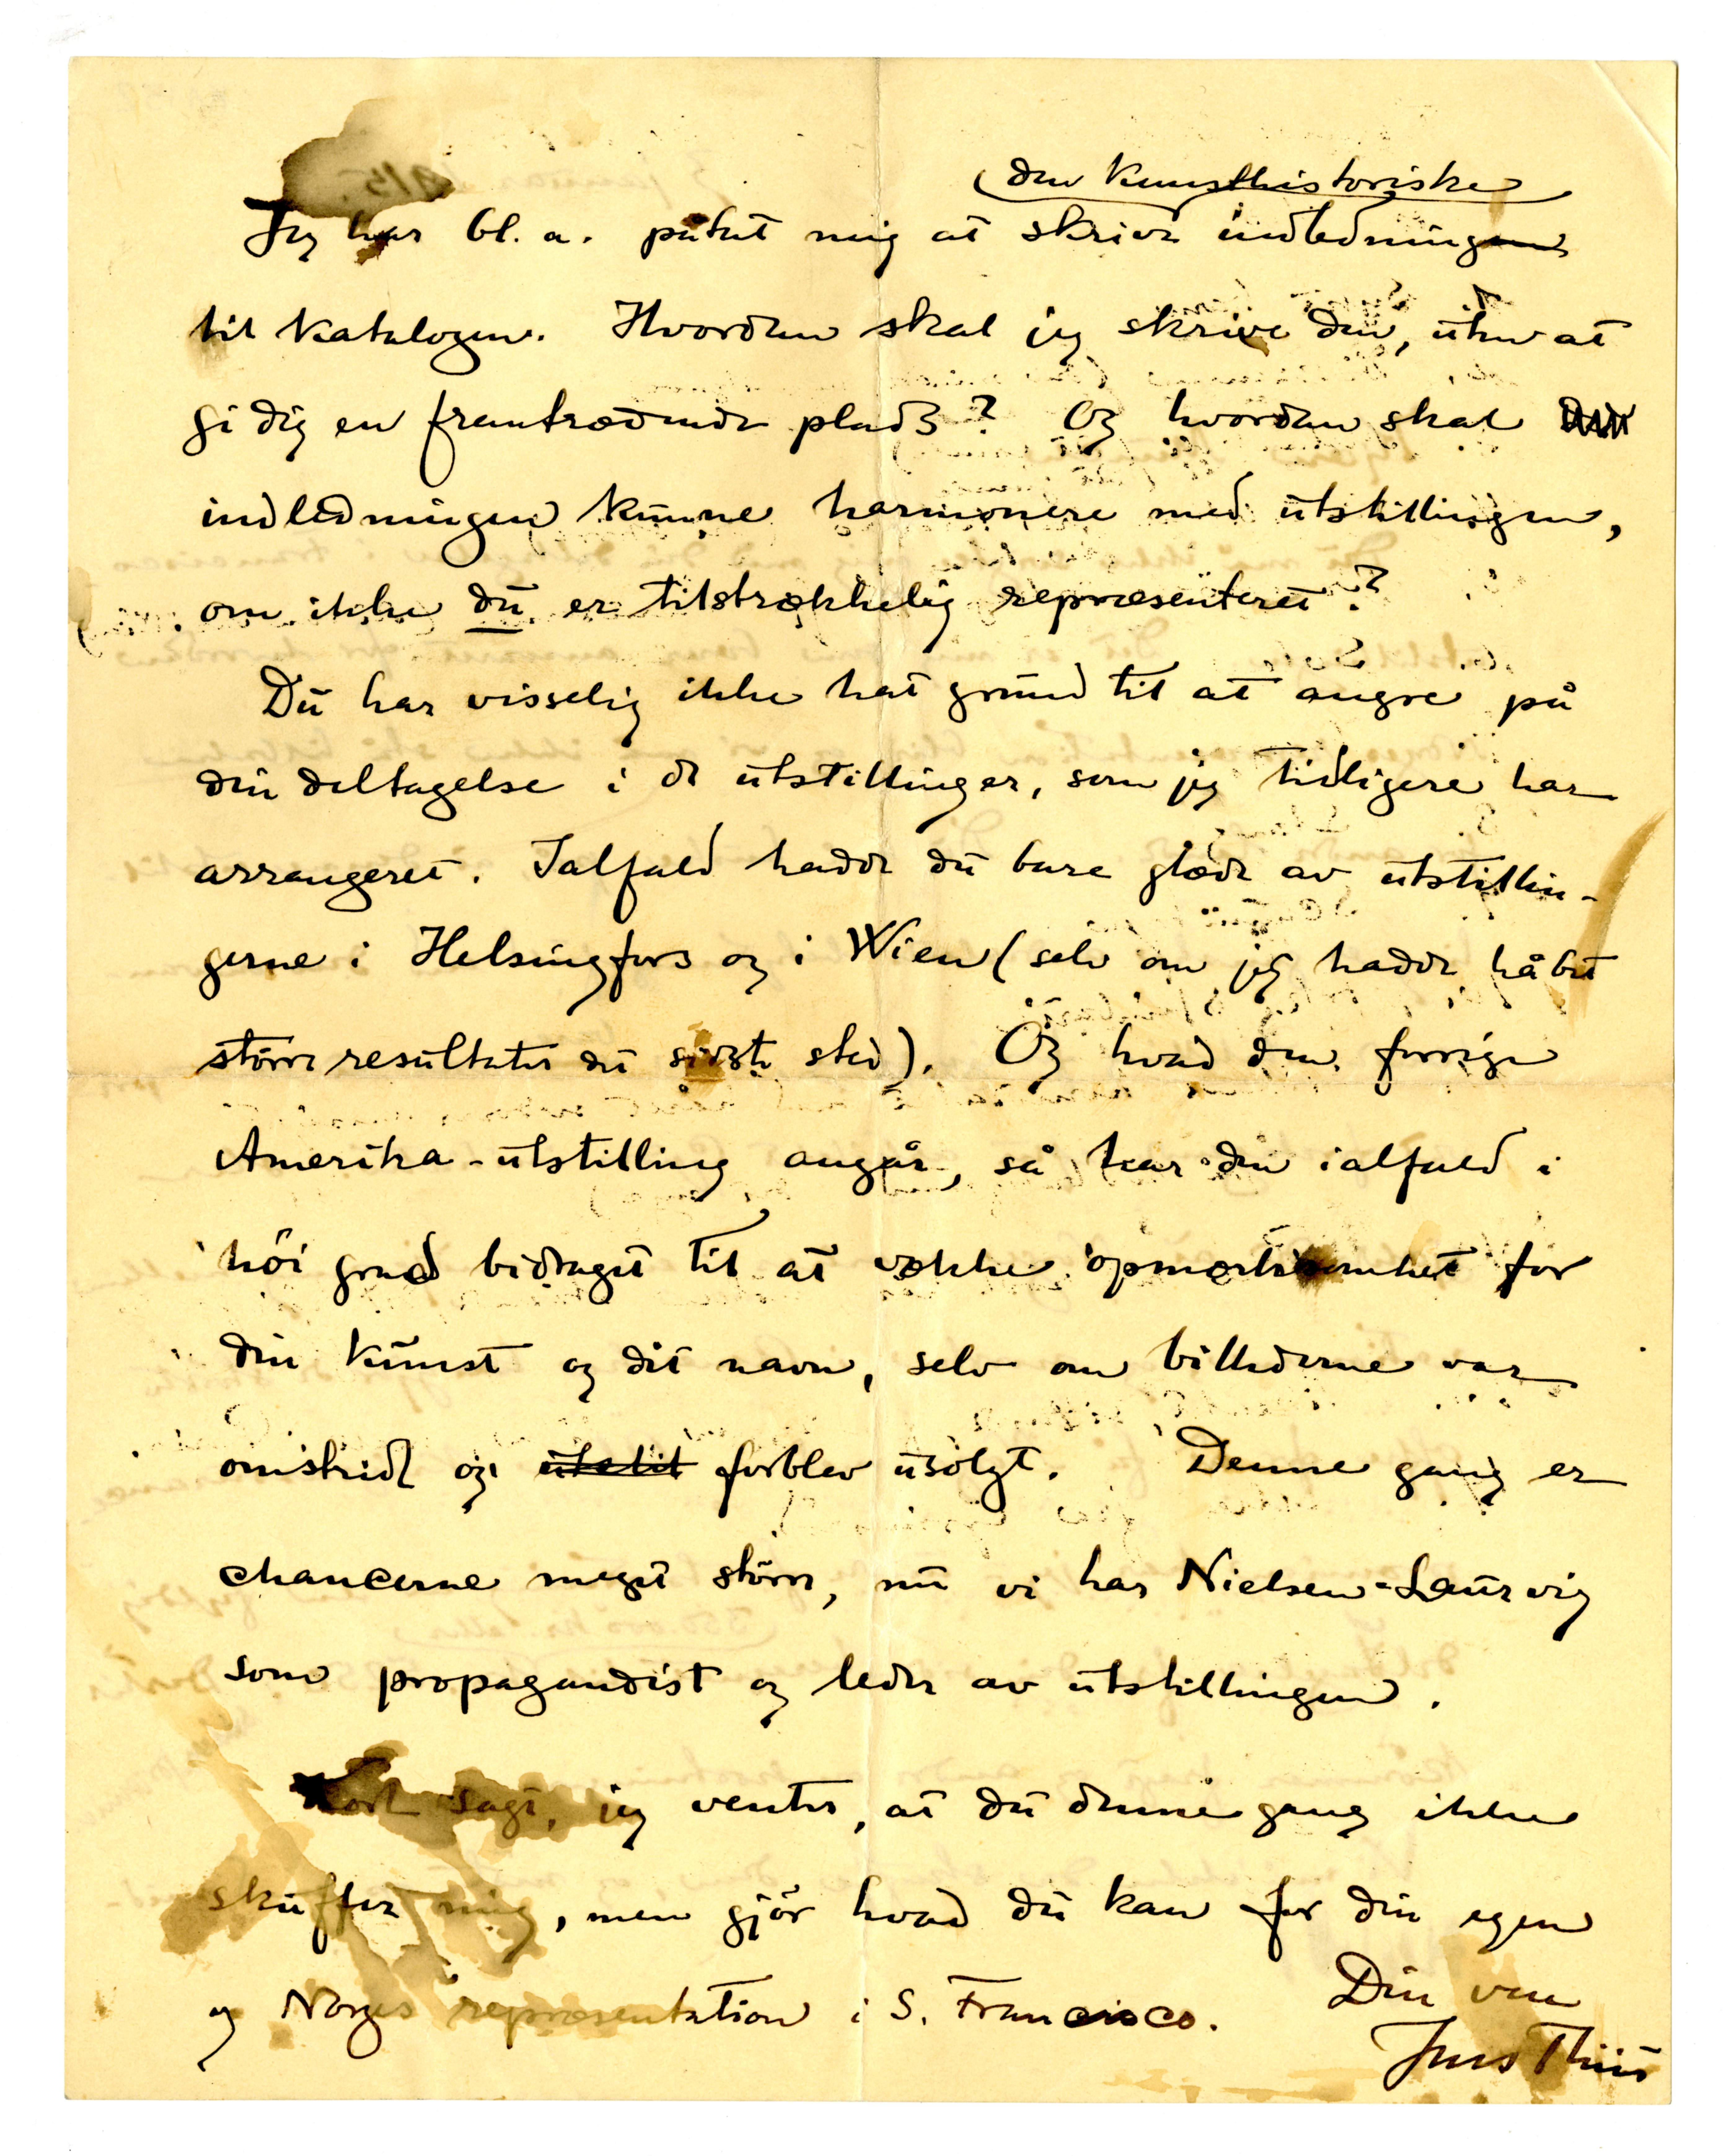 (den kunsthistoriske)
Jeg har bl. a. påtat mig at skrive indledningen
til katalogen. Hvordan skal jeg skrive den, uten at
gi dig en fremtrædende plads? Og hvordan skal
indledningen kunne harmonere med utstillingen,
om ikke du er tilstrækkelig repræsenteret?
Du har visselig ikke hat grund til at angre på
din deltagelse i de utstillinger, som jeg tidligere har
arrangeret. Ialfald hadde du bare glæde av utstillin-
gerne i Helsingfors og i Wien (selv om jeg hadde håbet
större resultater du sidste sted). Og hvad den forrige
Amerika-utstilling angår, så har den ialfald i
höi grad bidraget til at vække opmerksomhet for
din kunst og dit navn, selv om billederne var
omstridt og utelit forblev usolgt. Denne gang er
chancerne meget större, nu vi har Nielsen-Laurvig
som propagandist og leder av utstillingen.
Kort sagt, jeg venter, at du denne gang ikke
skuffer mig, men gjör hvad du kan for din egen
og Norges repræsentation i S. Francisco.
Din ven
Jens Thiis